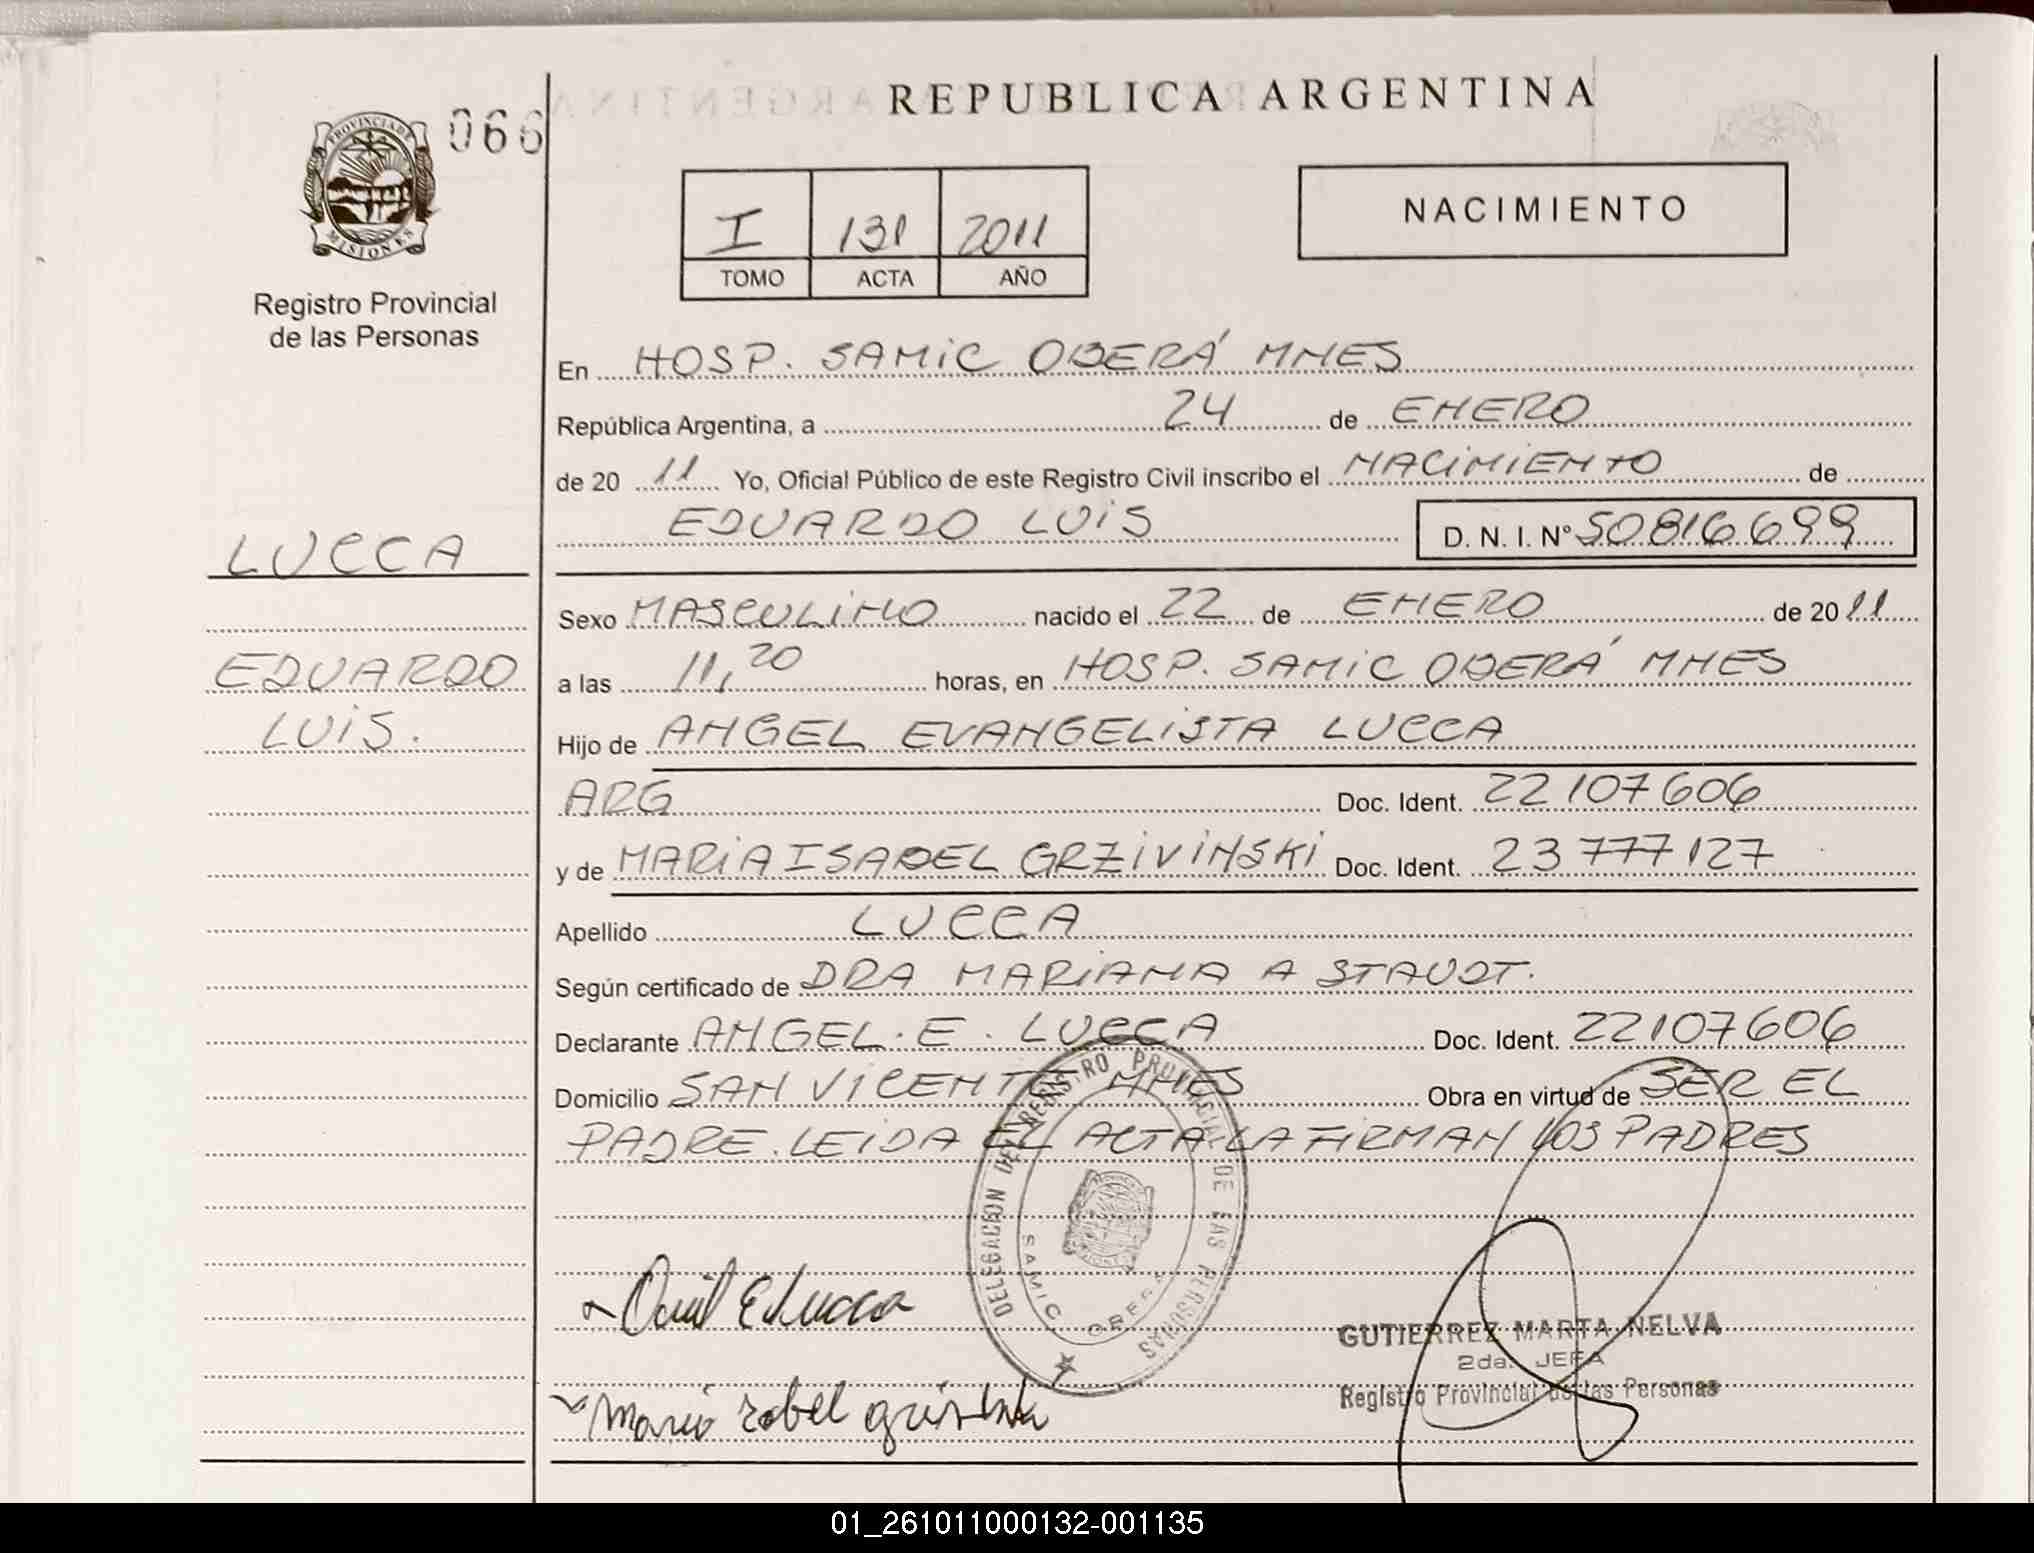 REPUBLICA ARGENTINA
PROVINCIA DE
MISIONES
066
Registro Provincial
de las Personas
I 131 2011
TOMO ACTA AÑO
NACIMIENTO
En HOSP. SAMIC OBERÁ MNES
República Argentina, a 24 de ENERO
de 20 11 Yo, Oficial Público de este Registro Civil inscribo el NACIMIENTO de
EDUARDO LUIS D. N. I. Nº 50816699
LUCCA
EDUARDO
LUIS.
Sexo MASCULINO nacido el 22 de ENERO de 20 11
a las 11,20 horas, en HOSP. SAMIC OBERÁ MNES
Hijo de ANGEL EVANGELISTA LUCCA
ARG Doc. Ident. 22107606
y de MARIA ISABEL GRZIVINSKI Doc. Ident. 23777127
Apellido LUCCA
Según certificado de DRA MARIANA A STAUDT.
Declarante ANGEL. E. LUCCA Doc. Ident. 22107606
Domicilio SAN VICENTE MNES Obra en virtud de SER EL
PADRE. LEIDA EL ACTA LA FIRMAN LOS PADRES
DELEGACION DEL REGISTRO PROVINCIAL DE LAS PERSONAS
SAMIC OBERA
GUTIERREZ MARTA NELVA
2da. JEFA
Registro Provincial de las Personas
01_261011000132-001135